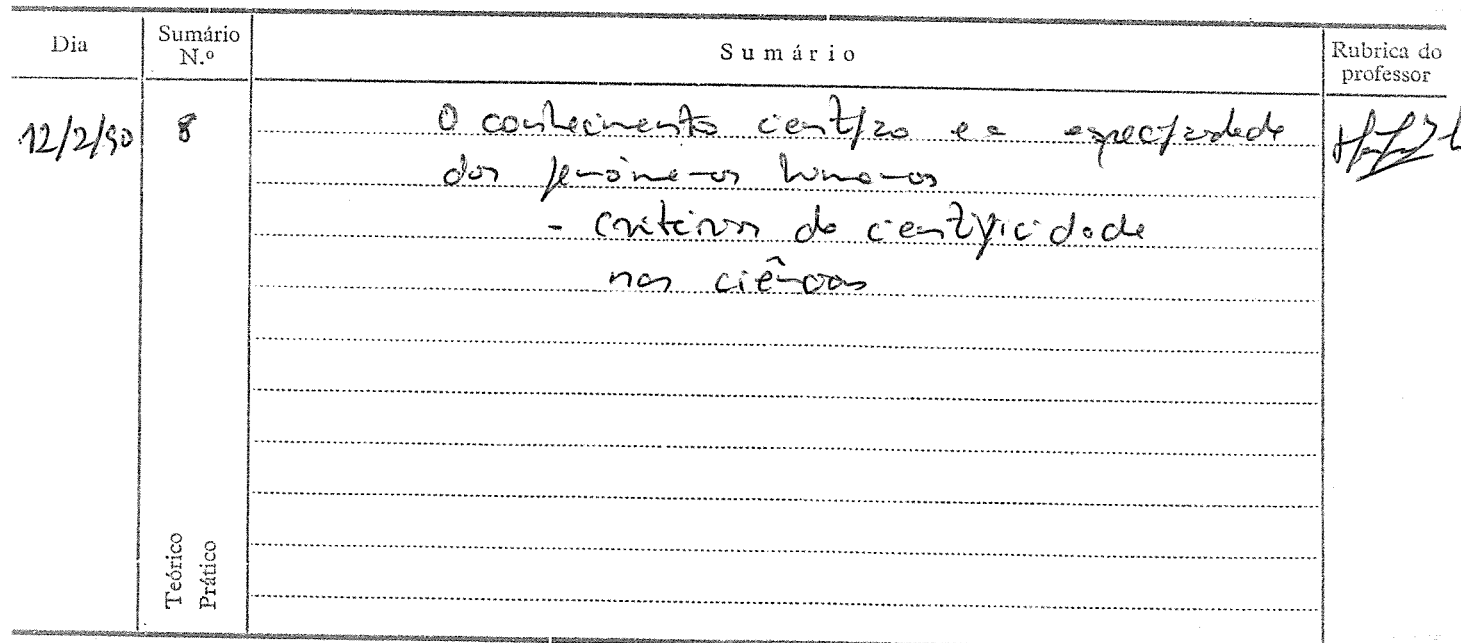 Dia
Sumário N.º
Sumário
Rubrica do professor
12/2/90
8
O conhecimento científico e a especificidade
dos fenómenos humanos
- critérios de cientificidade
nas ciências
Teórico
Prático